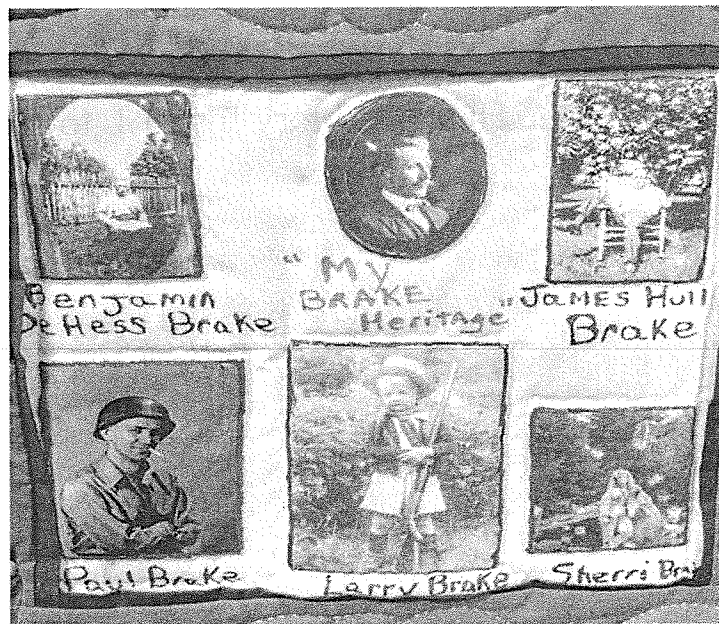 Benjamin
DeHess Brake
"My
BRAKE
Heritage"
JAMES Hull
Brake
Paul Brake
Larry Brake
Sherri Bra